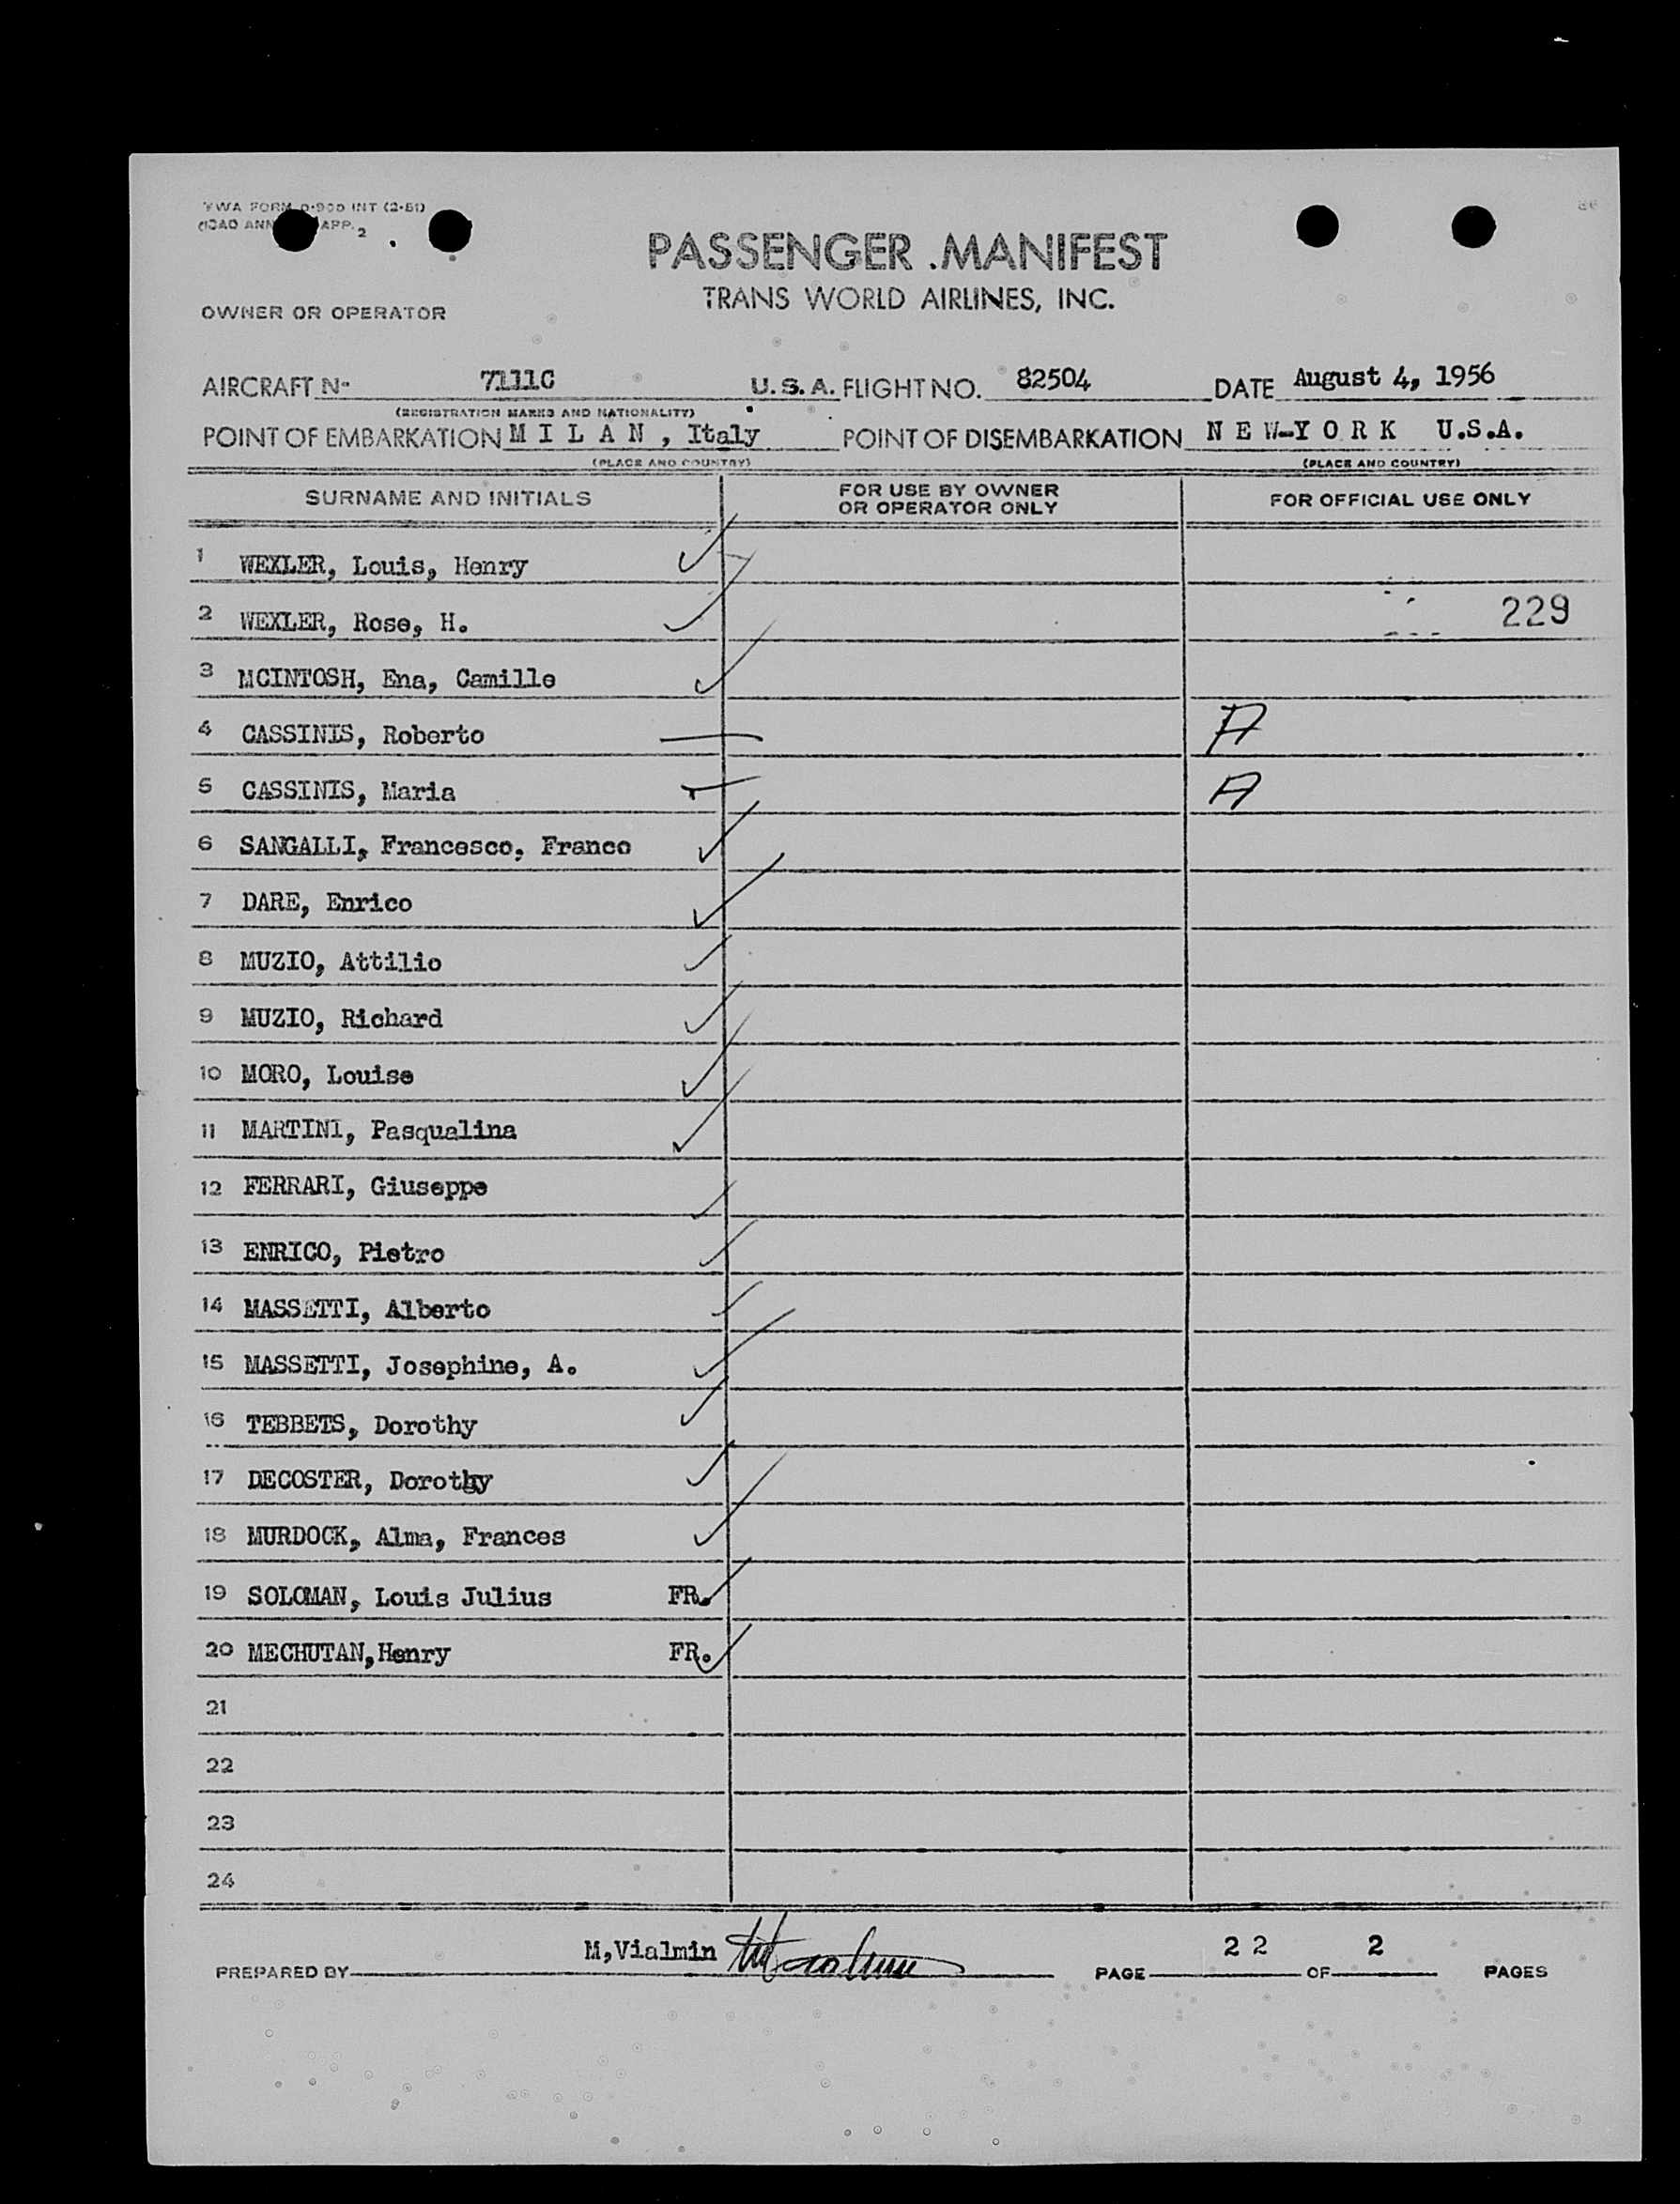 TWA FORM O-900 INT (2-51)
(ICAO ANN APP. 2
PASSENGER .MANIFEST
TRANS WORLD AIRLINES, INC.
OWNER OR OPERATOR
AIRCRAFT No 7111C U.S.A. FLIGHT NO. 82504 DATE August 4, 1956
(REGISTRATION MARKS AND NATIONALITY)
POINT OF EMBARKATION M I L A N , Italy POINT OF DISEMBARKATION N E W-Y O R K U.S.A.
(PLACE AND COUNTRY) (PLACE AND COUNTRY)
SURNAME AND INITIALS FOR USE BY OWNER OR OPERATOR ONLY FOR OFFICIAL USE ONLY
1 WEXLER, Louis, Henry
2 WEXLER, Rose, H. 229
3 MCINTOSH, Ena, Camille
4 CASSINIS, Roberto A
5 CASSINIS, Maria A
6 SANGALLI, Francesco, Franco
7 DARE, Enrico
8 MUZIO, Attilio
9 MUZIO, Richard
10 MORO, Louise
11 MARTINI, Pasqualina
12 FERRARI, Giuseppe
13 ENRICO, Pietro
14 MASSETTI, Alberto
15 MASSETTI, Josephine, A.
16 TEBBETS, Dorothy
17 DECOSTER, Dorothy
18 MURDOCK, Alma, Frances
19 SOLOMAN, Louis Julius FR.
20 MECHUTAN,Henry FR.
21
22
23
24
PREPARED BY M,Vialmin PAGE 2 2 OF 2 PAGES